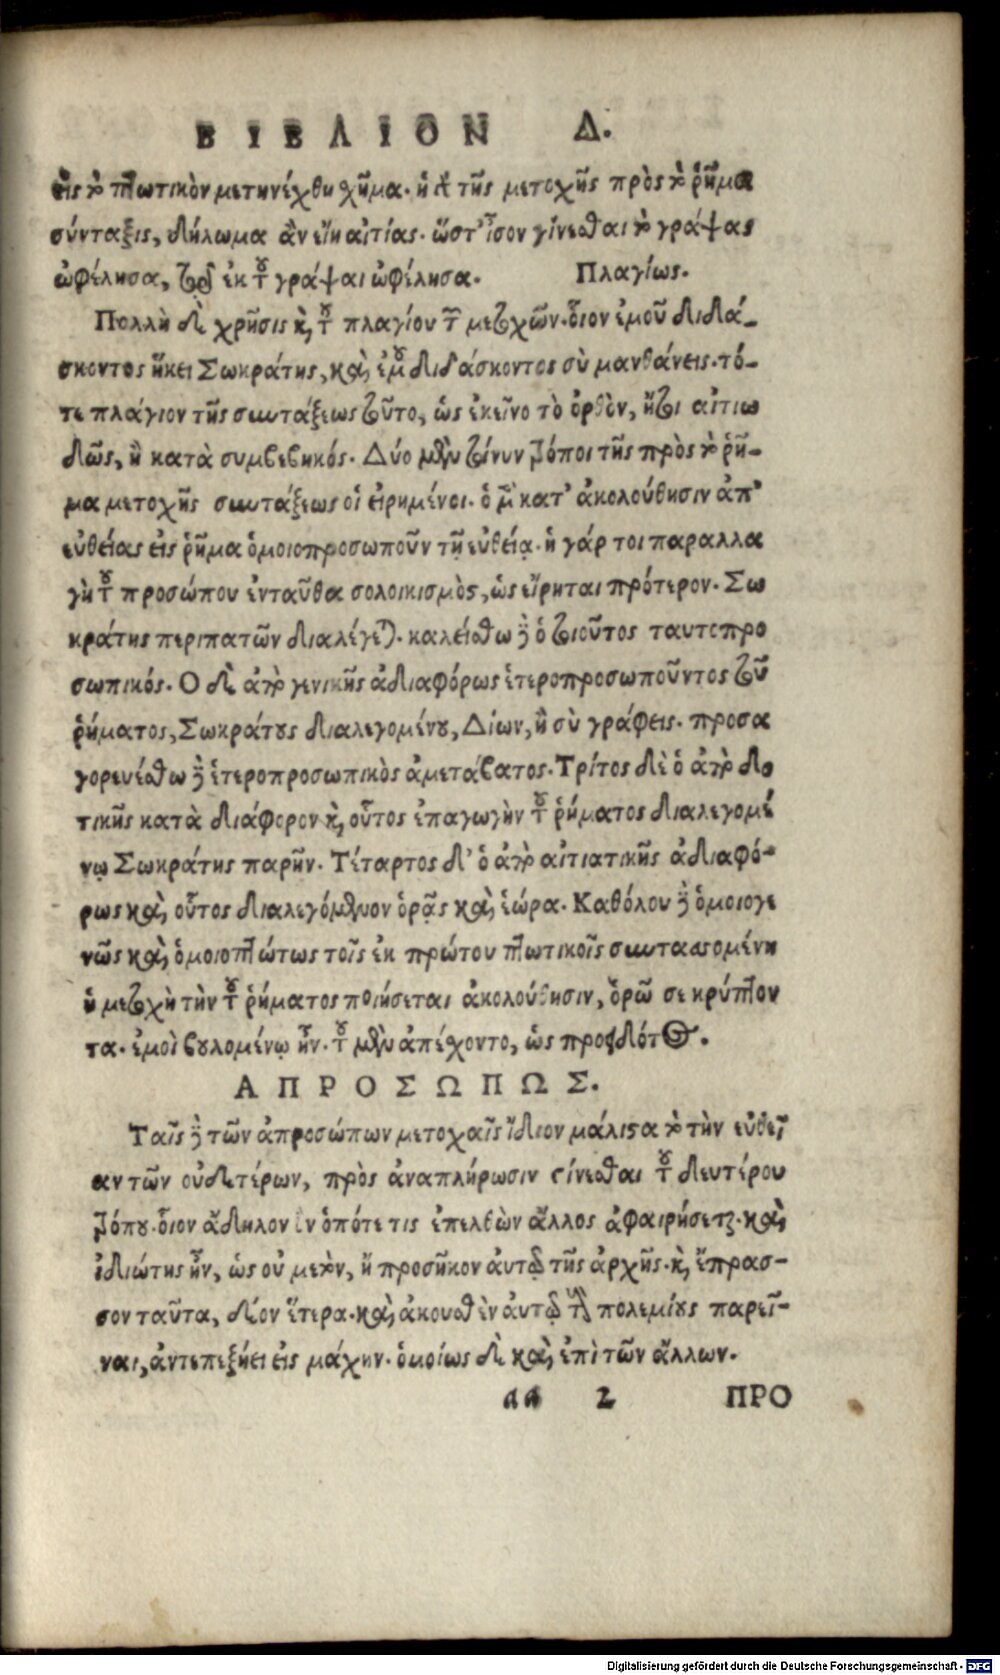 ΒΙΒΛΙΟΝ Δ.
εἰς τὸ πτωτικὸν μετηνέχθη σχῆμα. ἡ δὲ τῆς μετοχῆς πρὸς τὸ ῥῆμα
σύνταξις, δήλωμα ἂν εἴη αἰτίας. ὥστ' ἶσον γίνεσθαι τὸ γράψας
ὠφέλησα, τῷ ἐκ τοῦ γράψαι ὠφέλησα. Πλαγίως.
Πολλὴ δὲ χρῆσις καὶ τοῦ πλαγίου τῶν μετοχῶν. οἷον ἐμοῦ διδά-
σκοντος ἥκει Σωκράτης, καὶ ἐμοῦ διδάσκοντος σὺ μανθάνεις. τό-
τε πλάγιον τῆς συντάξεως τοῦτο, ὡς ἐκεῖνο τὸ ὀρθὸν, ἤτοι αἰτιω
δῶς, ἢ κατὰ συμβεβηκός. Δύο μὲν τοίνυν τρόποι τῆς πρὸς τὸ ῥῆ-
μα μετοχῆς συντάξεως οἱ εἰρημένοι. ὁ μὲν κατ' ἀκολούθησιν ἀπ'
εὐθείας εἰς ῥῆμα ὁμοιοπροσωποῦν τῇ εὐθείᾳ. ἡ γάρ τοι παραλλα
γὴ τοῦ προσώπου ἐνταῦθα σολοικισμὸς, ὡς εἴρηται πρότερον. Σω
κράτης περιπατῶν διαλέγεται. καλείσθω δὲ ὁ τοιοῦτος ταυτοπρο
σωπικός. Ὁ δὲ ἀπὸ γενικῆς ἀδιαφόρως ἑτεροπροσωποῦντος τοῦ
ῥήματος, Σωκράτους διαλεγομένου, Δίων, ἢ σὺ γράφεις. προσα
γορευέσθω δὲ ἑτεροπροσωπικὸς ἀμετάβατος. Τρίτος δὲ ὁ ἀπὸ δο
τικῆς κατὰ διάφορον καὶ οὗτος ἐπαγωγὴν τοῦ ῥήματος διαλεγομέ
νῳ Σωκράτης παρῆν. Τέταρτος δ' ὁ ἀπὸ αἰτιατικῆς ἀδιαφό-
ρως καὶ οὗτος διαλεγόμενον ὁρᾷς καὶ ἑώρα. Καθόλου δὲ ὁμοιογε
νῶς καὶ ὁμοιοπτώτως τοῖς ἐκ πρώτου πτωτικοῖς συντασσομένη
ἡ μετοχὴ τὴν τοῦ ῥήματος ποιήσεται ἀκολούθησιν, ὁρῶ σε κρύπτον
τα. ἐμοὶ βουλομένῳ ἦν. τοῦ μὲν ἀπέχοντο, ὡς προδότος.
ΑΠΡΟΣΩΠΩΣ.
Ταῖς δὲ τῶν ἀπροσώπων μετοχαῖς ἴδιον μάλιστα τὸ τὴν εὐθεῖ
αν τῶν οὐδετέρων, πρὸς ἀναπλήρωσιν γίνεσθαι τοῦ δευτέρου
τρόπου. οἷον ἄδηλον ὂν ὁπότε τις ἐπελθὼν ἄλλος ἀφαιρήσεται. καὶ
ἰδιώτης ἦν, ὡς οὐ μετὸν, ἢ προσῆκον αὐτῷ τῆς ἀρχῆς. καὶ ἔπρασ-
σον ταῦτα, δέον ἕτερα. καὶ ἀκουσθὲν αὐτῷ τοὺς πολεμίους παρεῖ-
ναι, ἀντεπεξῄει εἰς μάχην. ὁμοίως δὲ καὶ ἐπὶ τῶν ἄλλων.
aa 2 ΠΡΟ
Digitalisierung gefördert durch die Deutsche Forschungsgemeinschaft - DFG